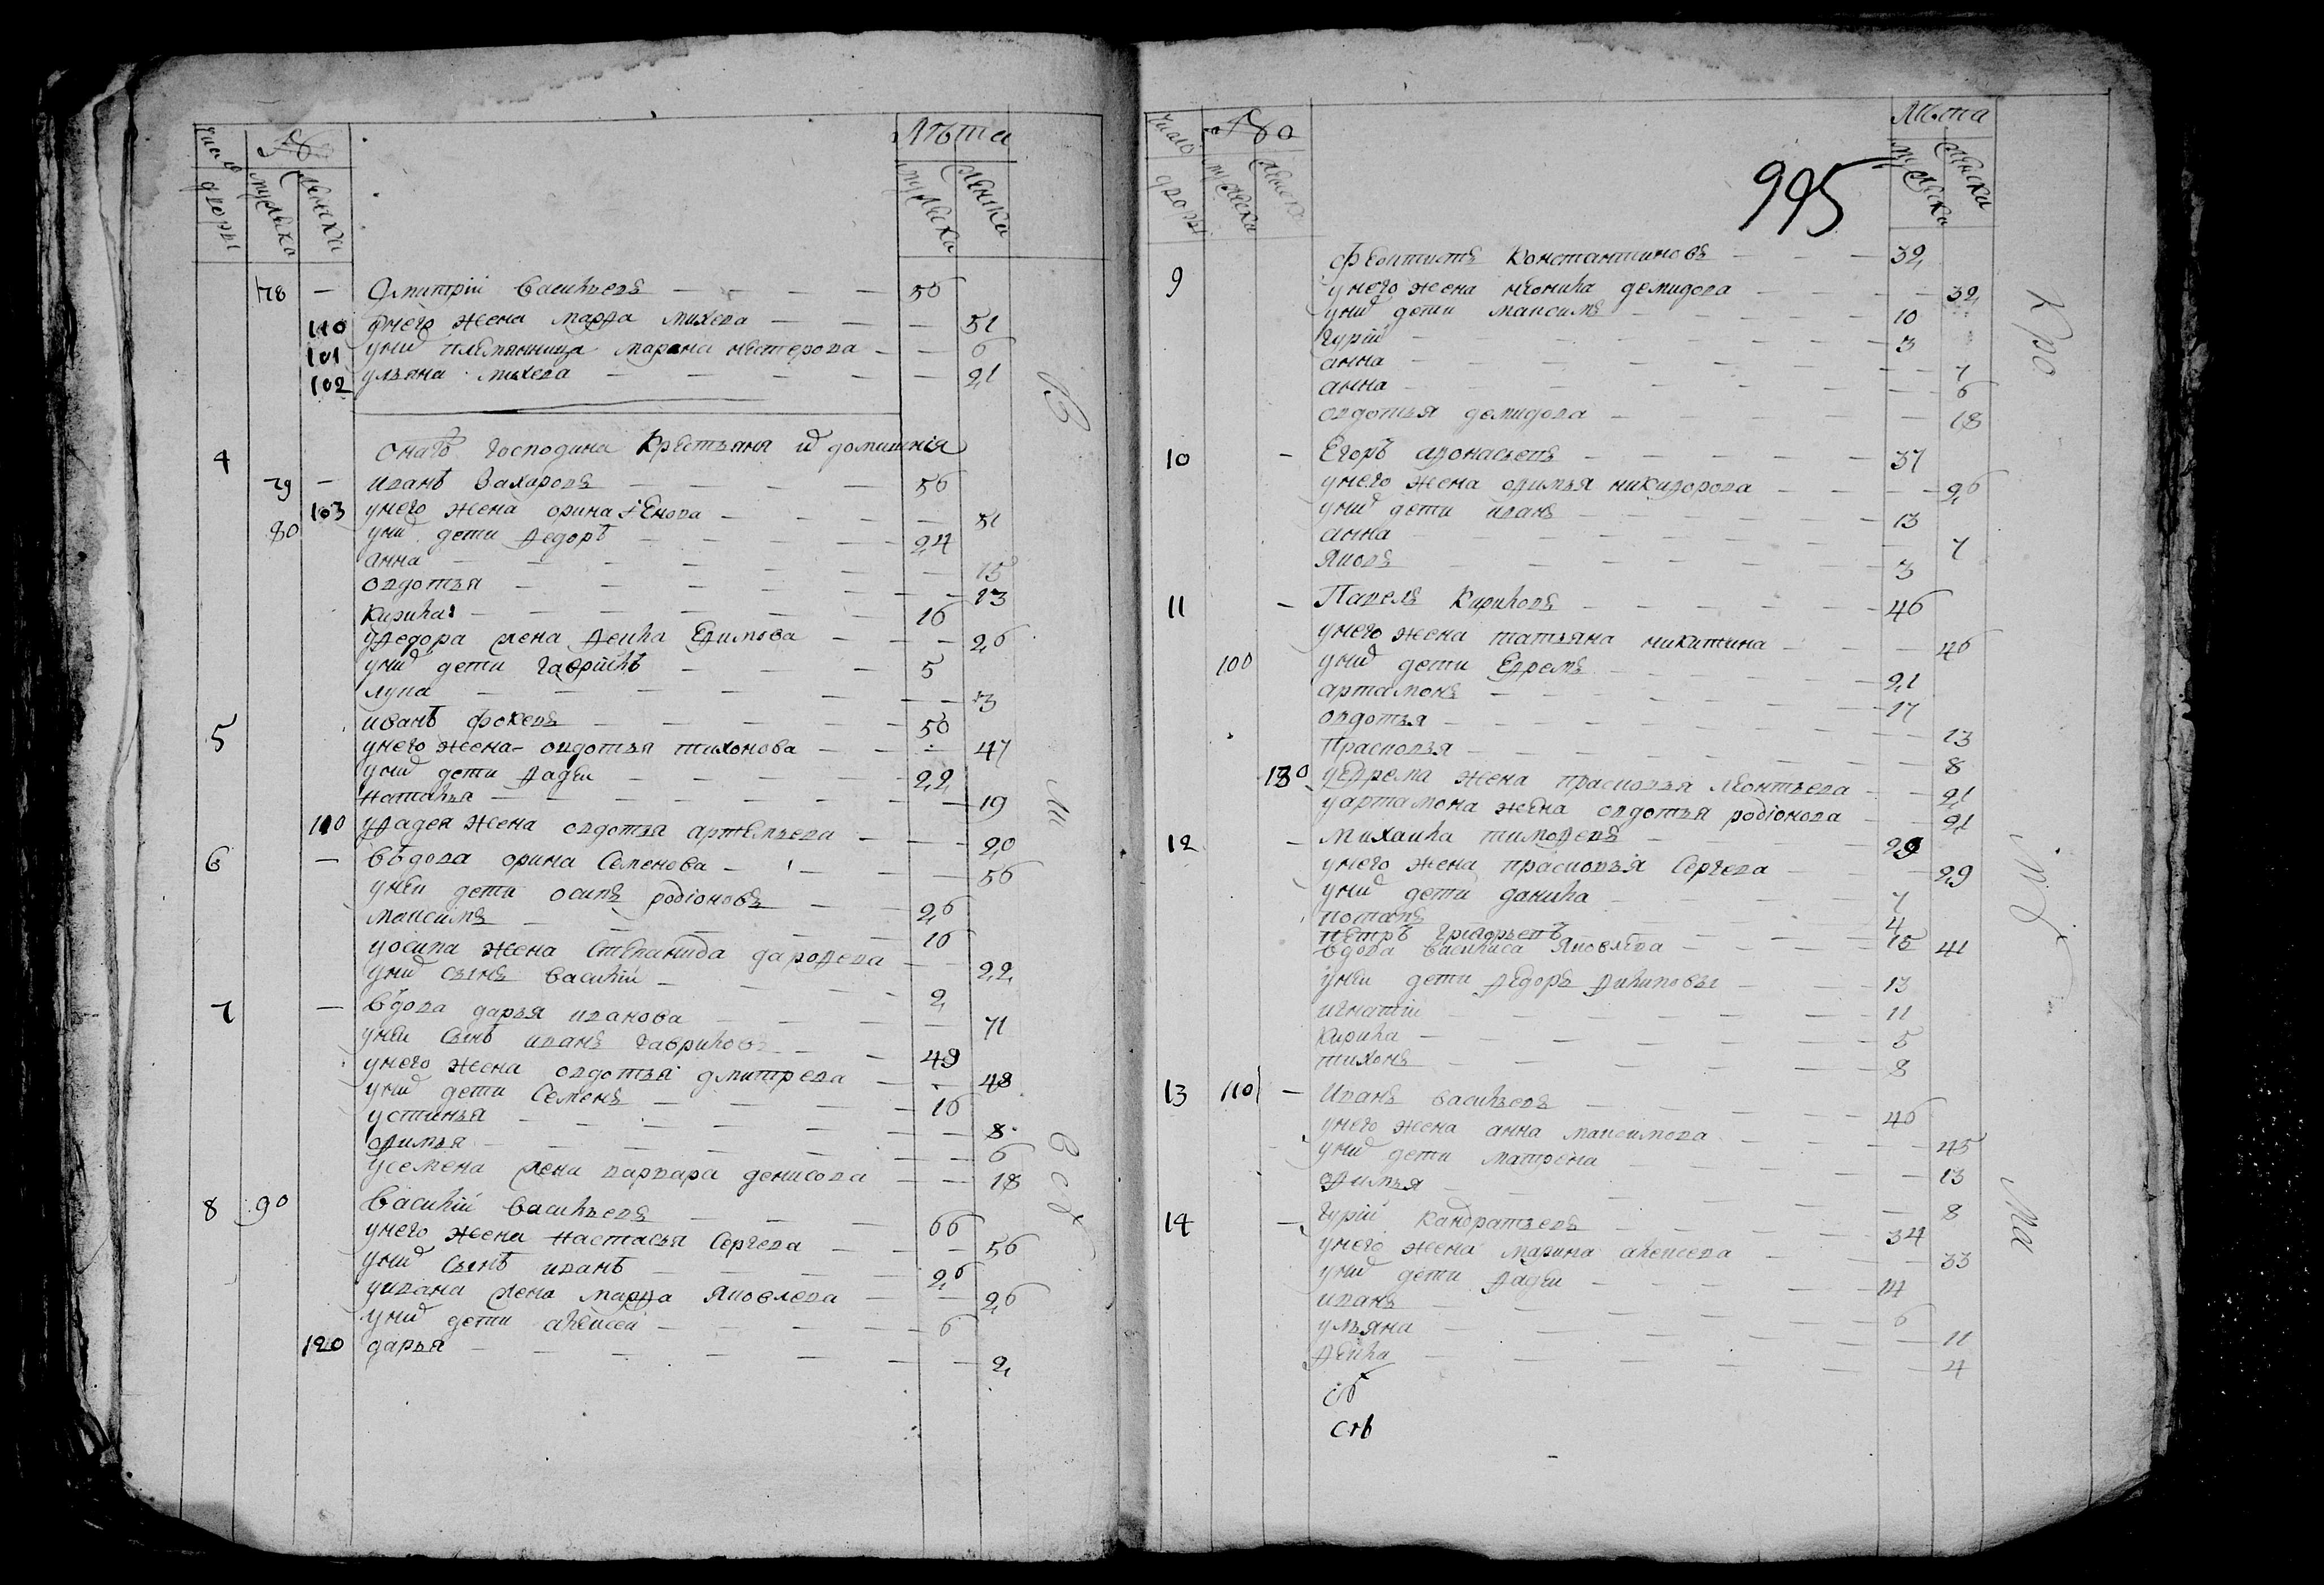 число дворы
муж:ска
женска
Лѣта
мужеска
женска
78 — Дмитрій васильевъ 50
110 унего жена марѳа михева 51
101 униⷯ племянница марѳна нестерова 6
102 ульяна михева 21
онагѣ господина Крестьяня и домашнія
4
79 — иванъ Захаровъ 56
103 унего жена орина 51
80 униⷯ дети ѳедоръ 24
анна 15
овдотья 13
Кирила 16
уѳедора жена ѳекла Ефимова 26
униⷯ дети гаврилъ 5
лупа 3
5 иванъ фокевъ 50
унего жена овдотья тихонова 47
униⷯ дети ѳадеи 22
наталья 19
110 уѳадея жена овдотья артемьева 20
6 — въдова орина Семенова 56
унеи дети осипъ родіоновъ 26
максимъ 16
уосипа жена степанида дароѳева 22
униⷯ сынъ василій 2
7 — въдова дарья иванова 71
унеи сынъ иванъ гавриловъ 49
унего жена овдотья дмитрева 48
униⷯ дети Семенъ 16
устинья 8
оѳимья 6
усемена жена варвара денисова 18
8 90 василій васильевъ 66
унего жена настасья Сергева 56
униⷯ сынъ иванъ 26
уивана жена марѳа яковлева 26
униⷯ дети алексеи 6
120 дарья 2
В
ли
всѣ
число дворы
мужеска
женска
Лѣта
мужеска
женска
995
феоктистъ Константиновъ 32
9 унего жена неонила демидова 32
униⷯ дети максимъ 10
гурій 3
анна 7
анна 6
овдотья демидова 18
10 — Егоръ аѳонасьевъ 37
унего жена оѳимья никиѳорова 26
униⷯ дети иванъ 13
анна 7
яковъ 3
11 — Павелъ Кириловъ 46
унего жена татьяна никитина 46
100 униⷯ дети Ефремъ 21
артамонъ 17
овдотья 13
Прасковья 8
130 уефрема жена прасковья леонтьева 21
уартамона жена овдотья родіонова 21
12 — михаила тимоѳевъ 29
унего жена прасковья Сергева 29
униⷯ дети данила 7
потапъ 4
петръ григорьевъ 15
вдова василиса яковлева 41
унеи дети ѳедоръ ѳилиповы 13
игнатій 11
Кирила 5
тихонъ 8
13 110 — Иванъ васильевъ 46
унего жена анна максимова 45
униⷯ дети матрена 13
оѳимья 8
14 — гурій кандратьевъ 34
унего жена марина алексева 33
униⷯ дети ѳадеи 14
иванъ 6
ульяна 11
ѳекла 4
Кро
Ма